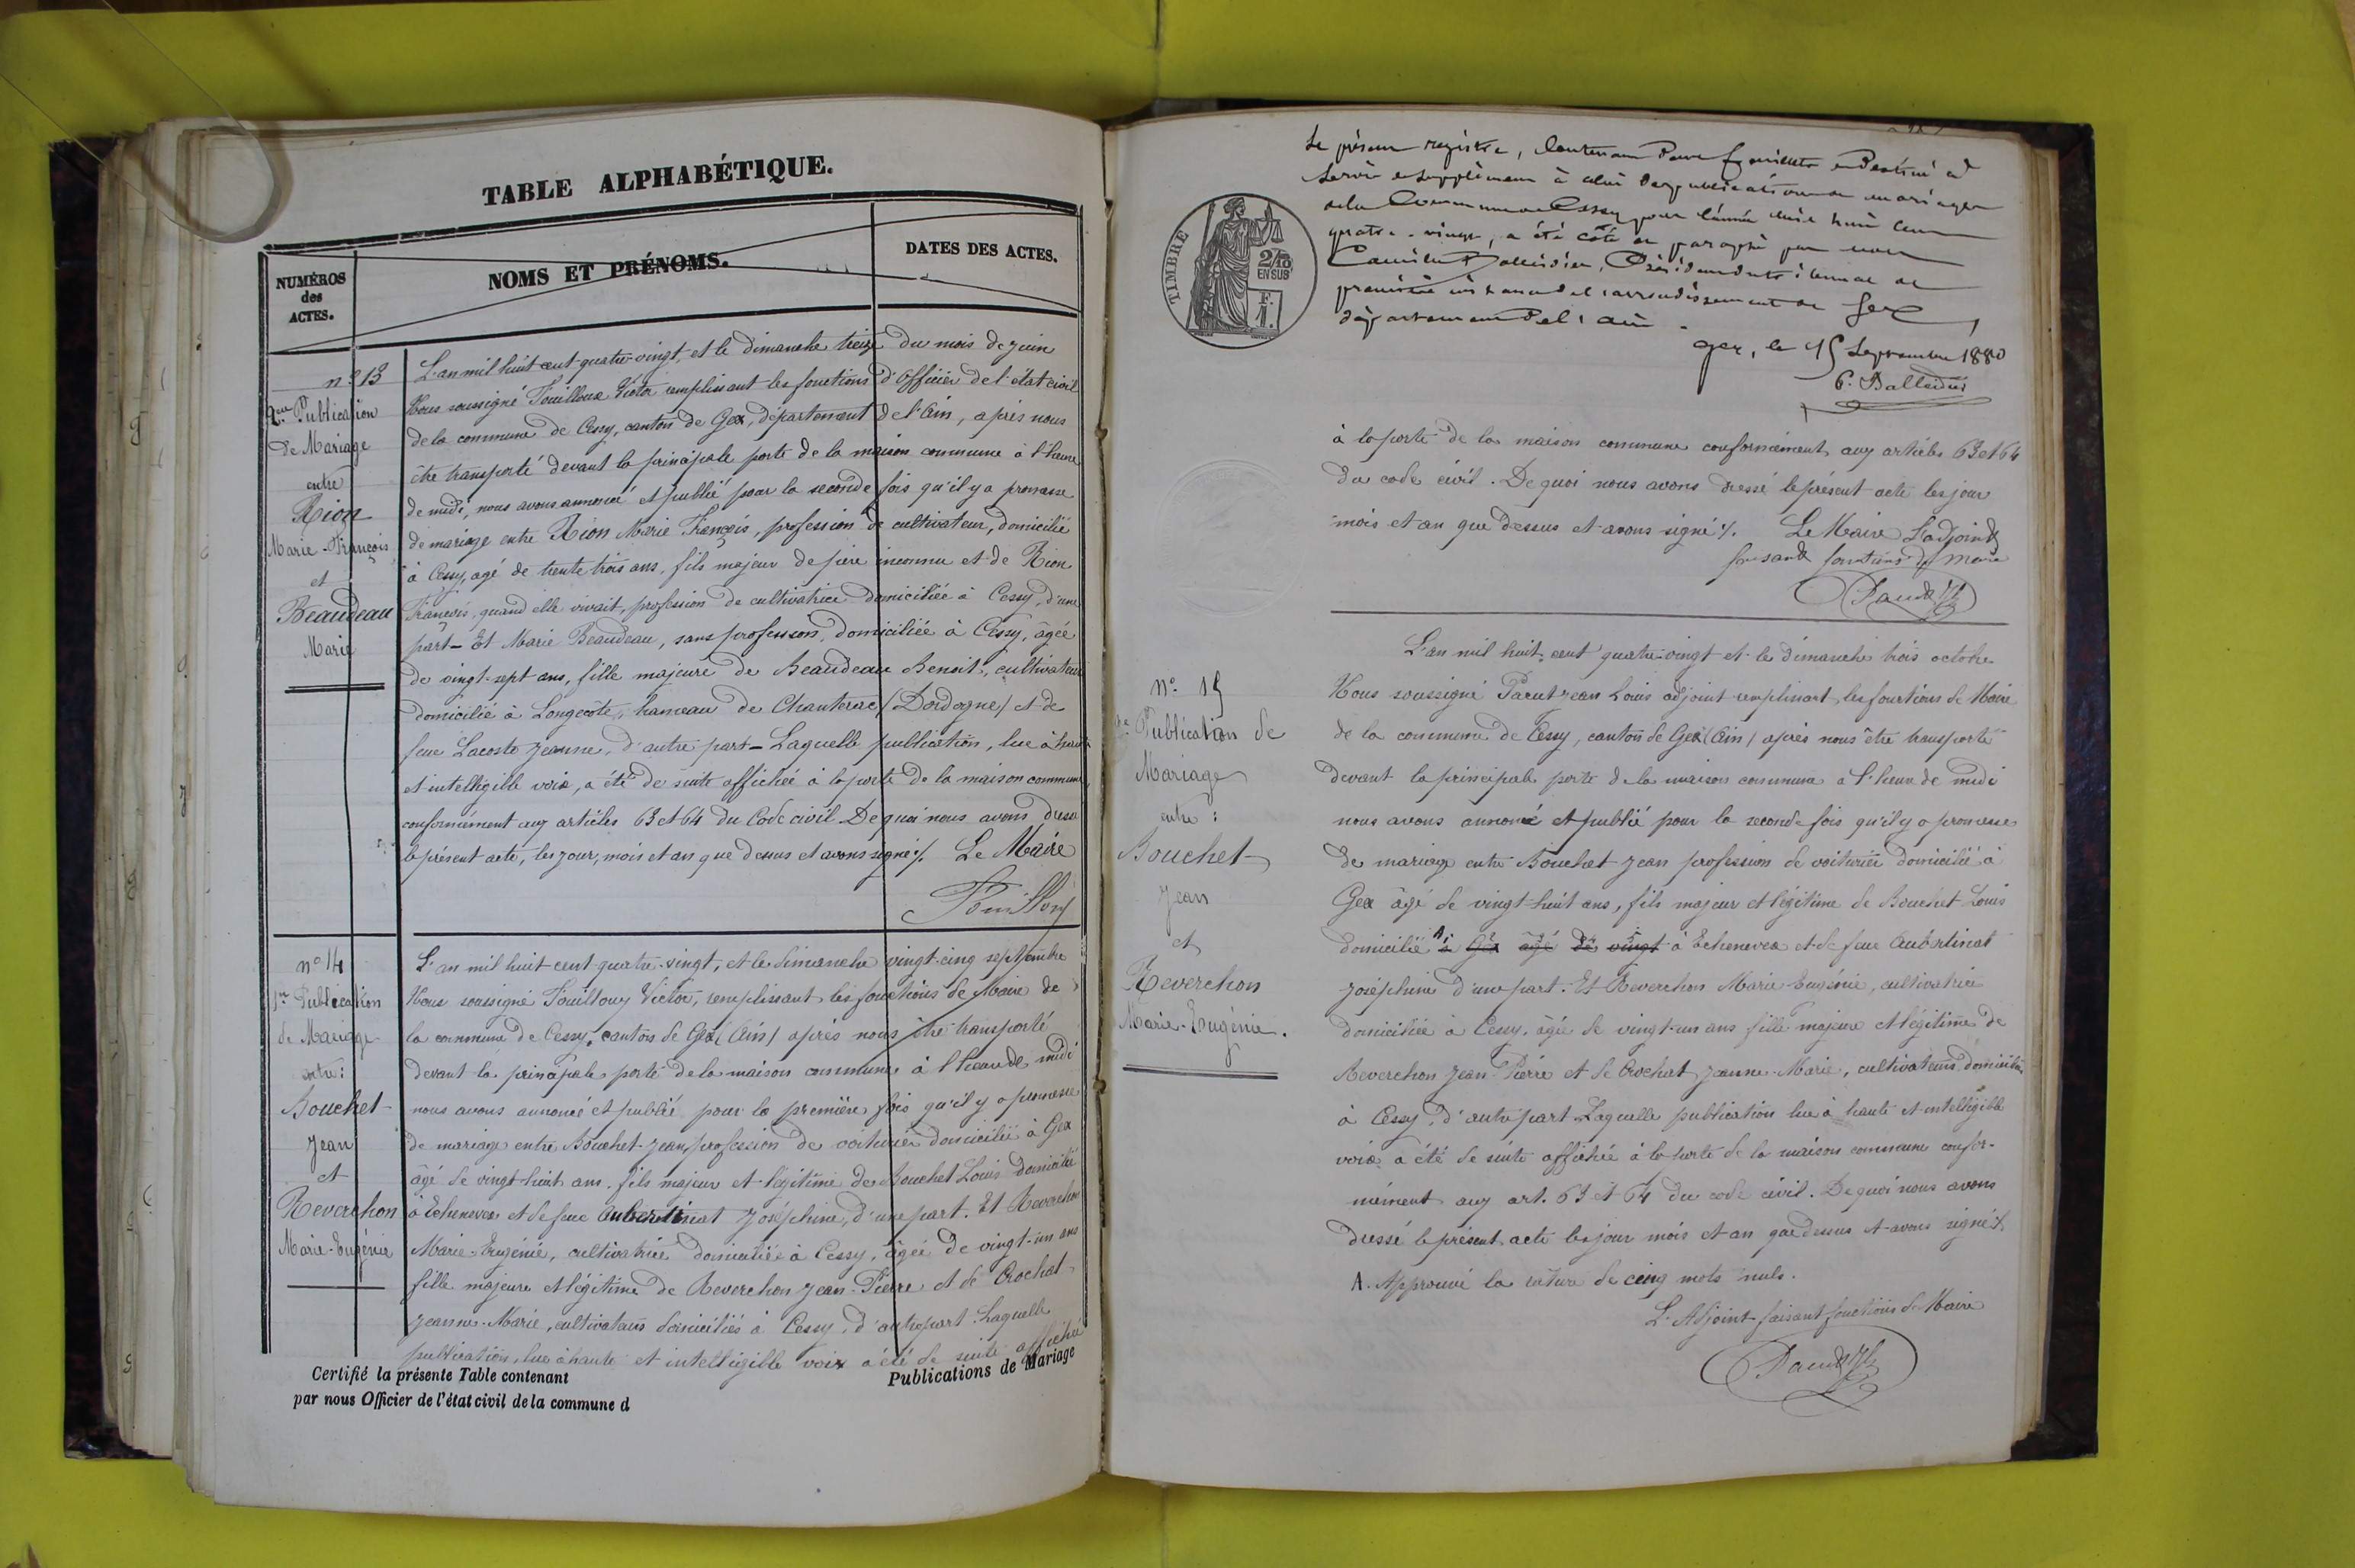 TABLE ALPHABÉTIQUE.
NUMÉROS
des
ACTES.
NOMS ET PRÉNOMS.
DATES DES ACTES.
n° 13
2me Publication
de Mariage
entre
Rion
Marie-François
et
Beaudeau
Marie
L'an mil huit cent quatre-vingt, et le dimanche treize du mois de juin
Nous soussigné Fouilloux Victor remplissant les fonctions d'officier de l'état civil
de la commune de Cessy, canton de Gex, département de l'Ain, après nous
être transporté devant la principale porte de la maison commune à l'heure
de midi, nous avons annoncé et publié pour la seconde fois qu'il y a promesse
de mariage entre Rion Marie François, profession de cultivateur, domicilié
à Cessy, agé de trente trois ans, fils majeur de père inconnu et de Rion
François, quand elle vivait, profession de cultivatrice domiciliée à Cessy, d'une
part - Et Marie Beaudeau, sans profession, domiciliée à Cessy, âgée
de vingt-sept ans, fille majeure de Beaudeau Benoit, cultivateur
domicilié à Longecôte, hameau de Chanterac (Dordogne) et de
feue Lacoste Jeanne, d'autre part - Laquelle publication, lue à haute
et intelligible voix, a été de suite affichée à la porte de la maison commune
conformément aux articles 63 et 64 du Code civil. De quoi nous avons dressé
le présent acte, les jour, mois et an que dessus et avons signé ./. Le Maire
Fouilloux
n° 14
1re Publication
de Mariage
entre:
Bouchet
Jean
et
Reverchon
Marie-Eugénie
L'an mil huit cent quatre-vingt, et le dimanche vingt-cinq septembre
Nous soussigné Fouilloux Victor, remplissant les fonctions de Maire de
la commune de Cessy, canton de Gex (Ain) après nous être transporté
devant la principale porte de la maison commune à l'heure de midi
nous avons annoncé et publié pour la première fois qu'il y a promesse
de mariage entre Bouchet Jean profession de voiturier domicilié à Gex
âgé de vingt-huit ans, fils majeur et légitime de Bouchet Louis domicilié
à Echenevex et de feue Joséphine, d'une part. Et Reverchon
Marie-Eugénie, cultivatrice domiciliée à Cessy, âgée de vingt-un ans
fille majeure et légitime de Reverchon Jean-Pierre et de Crochat
Jeanne-Marie, cultivateurs domiciliés à Cessy, d'autre part. Laquelle
publication, lue à haute et intelligible voix a été de suite affichée
Certifié la présente Table contenant
Publications de Mariage
par nous Officier de l'état civil de la commune d
Le présent registre, contenant deux feuillets et destiné à
servir de supplément à celui des publications de mariages
de la Commune de Cessy pour l'année mil huit cent
quatre-vingt, a été coté et paraphé par nous
Président du tribunal de
première instance de l'arrondissement de Gex
département de l'Ain.
Gex, le 15 Septembre 1880
TIMBRE
2/10
EN SUS
F.
1.
à la porte de la maison commune conformément aux articles 63 et 64
du code civil. De quoi nous avons dressé le présent acte les jour
mois et an que dessus et avons signé ./. Le Maire L'adjoint
faisant fonctions de Maire
n° 15
2me Publication de
Mariage
entre:
Bouchet
Jean
et
Reverchon
Marie-Eugénie.
L'an mil huit cent quatre-vingt et le dimanche trois octobre
Nous soussigné Parut Jean Louis adjoint remplissant les fonctions de Maire
de la commune de Cessy, canton de Gex (Ain) après nous être transporté
devant la principale porte de la maison commune à l'heure de midi
nous avons annoncé et publié pour la seconde fois qu'il y a promesse
de mariage entre Bouchet Jean profession de voiturier domicilié à
Gex âgé de vingt-huit ans, fils majeur et légitime de Bouchet Louis
domicilié à Gex âgé de vingt à Echenevex et de feue
Joséphine d'une part. Et Reverchon Marie-Eugénie, cultivatrice
domiciliée à Cessy, âgée de vingt-un ans fille majeure et légitime de
Reverchon Jean-Pierre et de Crochat Jeanne-Marie, cultivateurs domiciliés
à Cessy, d'autre part. Laquelle publication lue à haute et intelligible
voix a été de suite affichée à la porte de la maison commune confor-
mément aux art. 63 et 64 du code civil. De quoi nous avons
dressé le présent acte les jour mois et an que dessus et avons signé ./.
Approuvé la rature de cinq mots nuls.
L'Adjoint faisant fonctions de Maire